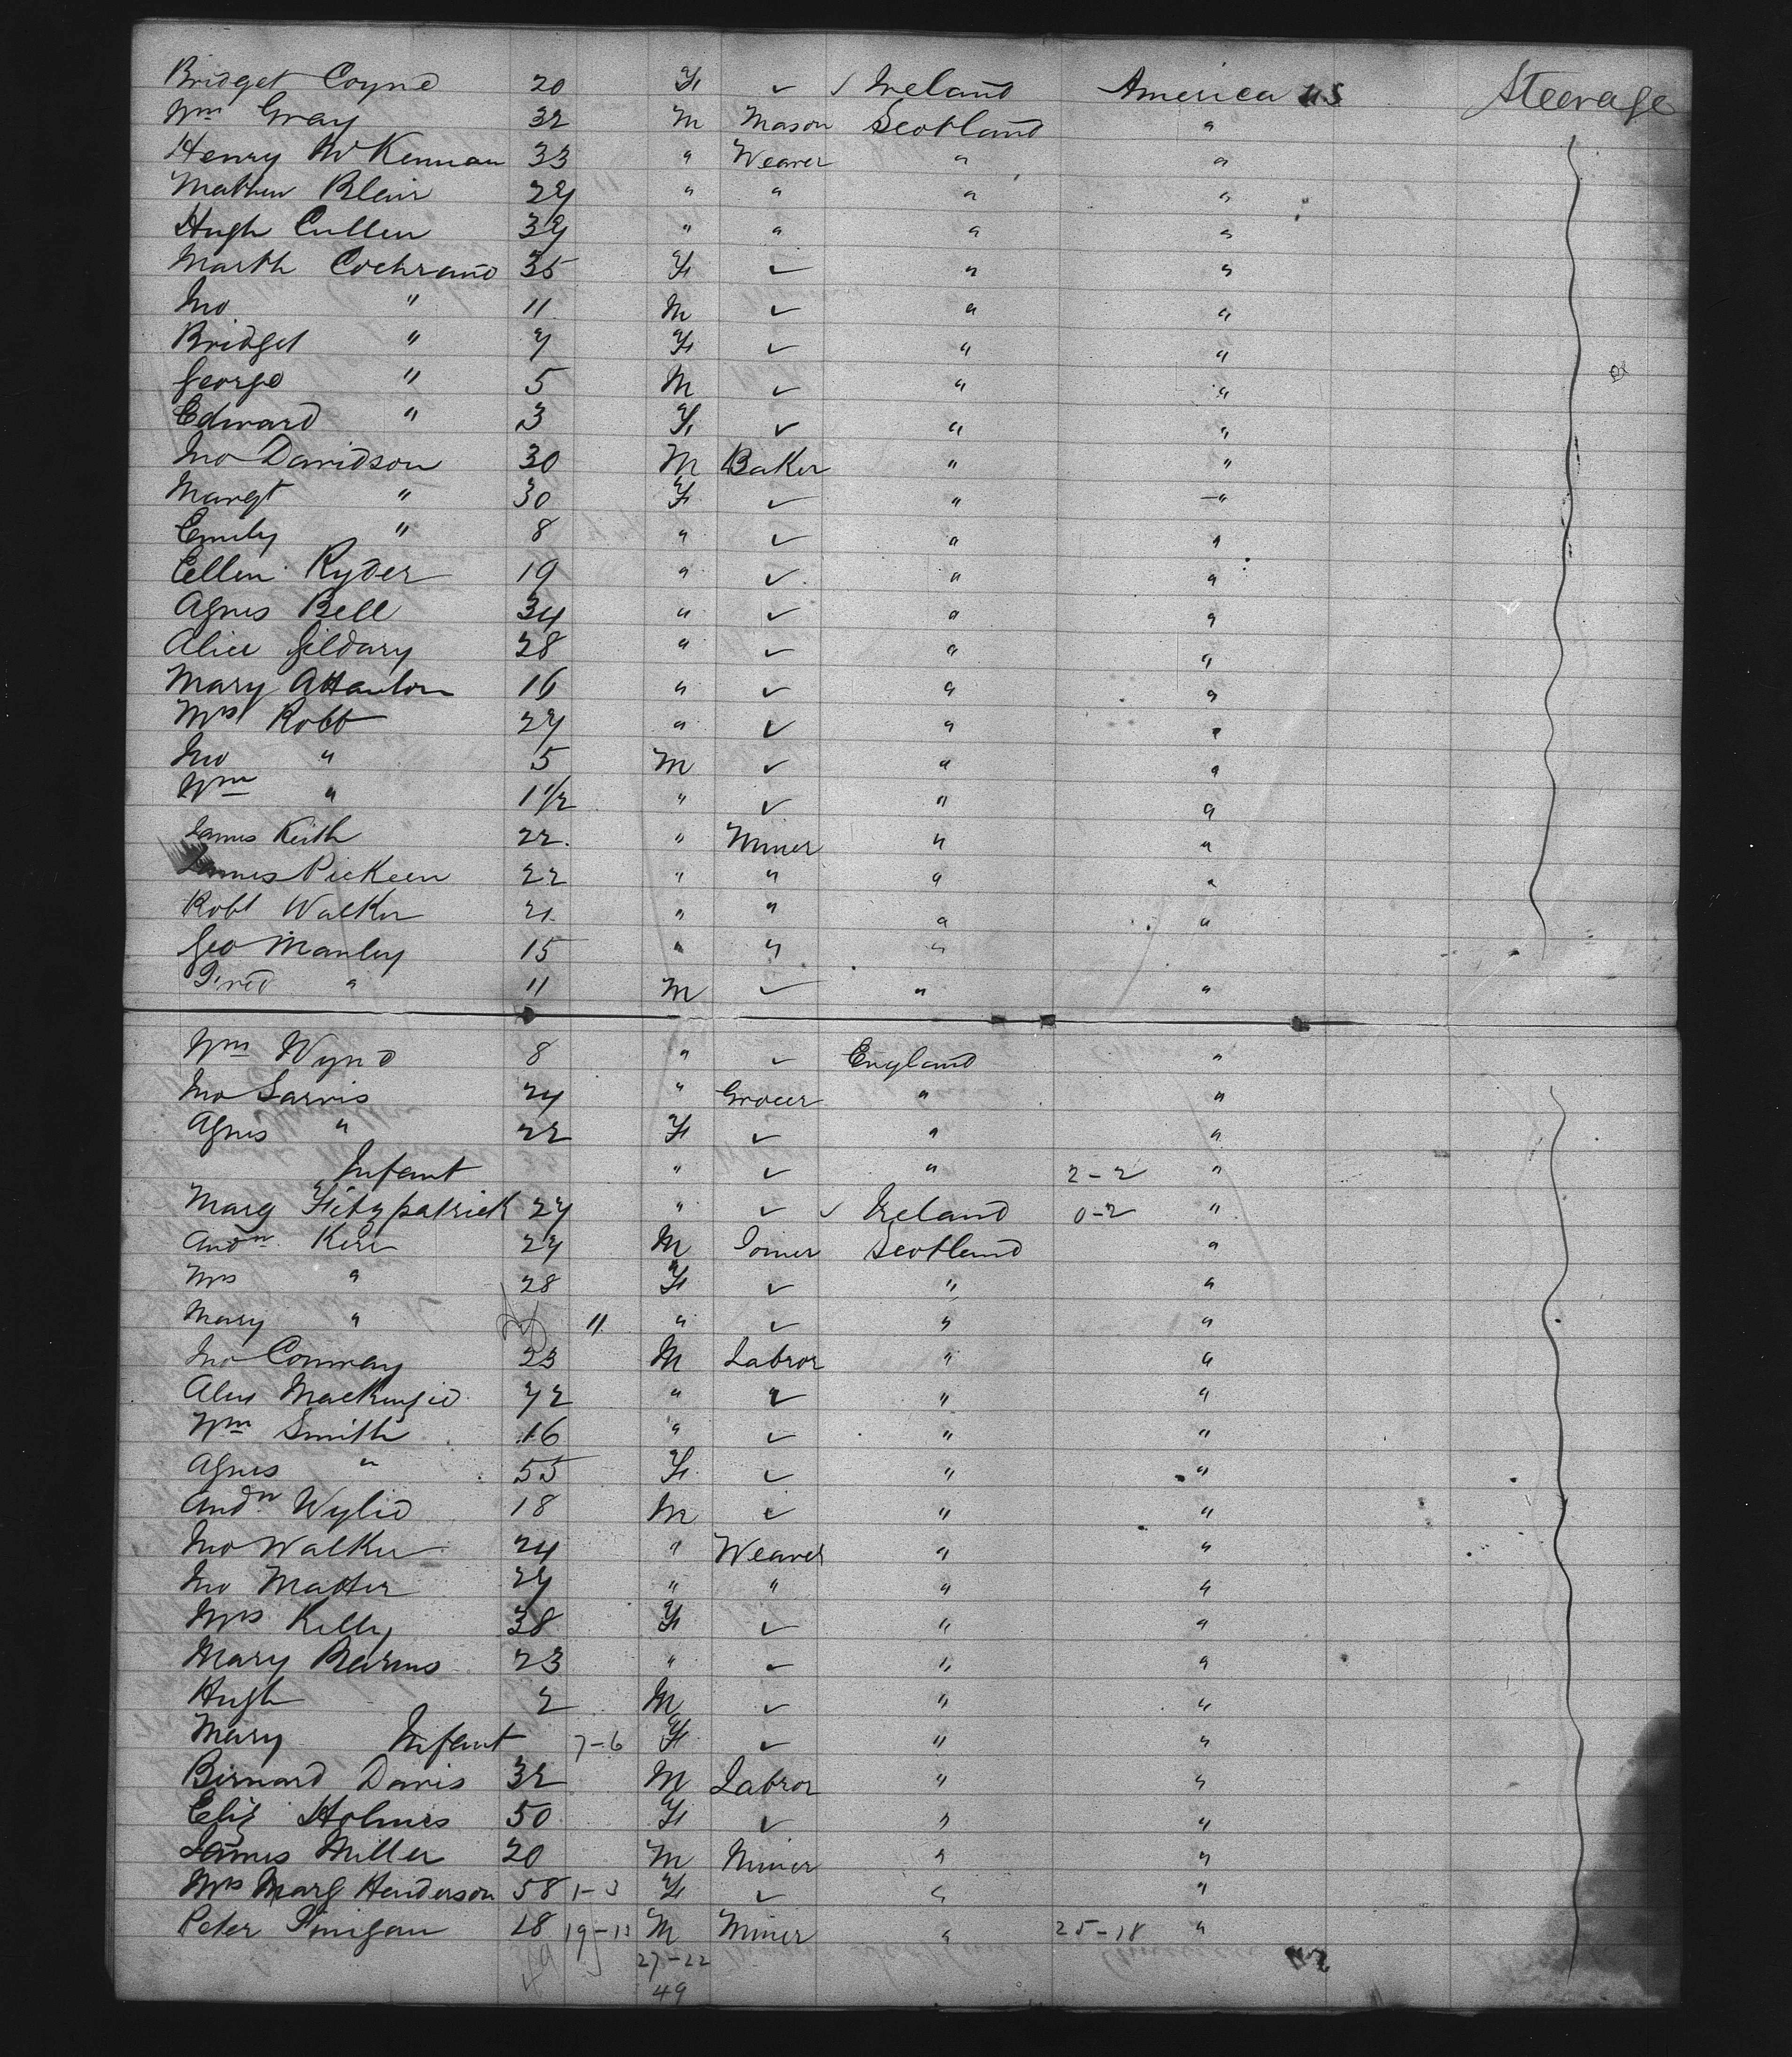 Bridget Coyne 20 F ✓ ✓ Ireland America US Steerage
Wm Gray 32 M Mason Scotland "
Henry McKennan 33 " Weaver " "
Mathew Blair 27 " " " "
Hugh Cullen 39 " " " "
Marth Cochrane 35 F ✓ " "
Jno " 11 M ✓ " "
Bridget " 7 F ✓ " "
George " 5 M ✓ " "
Edward " 3 F ✓ " "
Jno Davidson 30 M Baker " "
Margt " 30 F ✓ " "
Emily " 8 " ✓ " "
Ellen Ryder 19 " ✓ " "
Agnes Bell 34 " ✓ " "
Alice Gildary 28 " ✓ " "
Mary OHanlon 16 " ✓ " "
Mrs Robb 27 " ✓ " "
Jno " 5 M ✓ " "
Wm " 1 1/2 " ✓ " "
James Keith 22 " Miner " "
James Pickeen 22 " " " "
Robt Walker 21 " " " "
Geo Manley 15 " " " "
Fred " 11 M ✓ " "
Wm Wynd 8 " ✓ England "
Jno Jarvis 24 " Grocer " "
Agnes " 22 F ✓ " "
Infant " ✓ " 2-2 "
Marg Fitzpatrick 27 " ✓ ✓ Ireland 0-2 "
Andw Kerr 27 M Joiner Scotland "
Mrs " 28 F ✓ " "
Mary " 11 " ✓ " "
Jno Conway 23 M Labror " "
Alex Mackenzie 72 " ✓ " "
Wm Smith 16 " ✓ " "
Agnes " 55 F ✓ " "
Andw Wylie 18 M ✓ " "
Jno Walker 24 " Weaver " "
Jno Matter 27 " " " "
Mrs Kelly 38 F ✓ " "
Mary Bearns 23 " ✓ " "
Hugh 2 M ✓ " "
Mary Infant 7-6 F ✓ " "
Bernard Davis 32 M Labror " "
Eliz Holmes 50 F ✓ " "
James Miller 20 M Miner " "
Mrs Marg Henderson 58 1-3 F ✓ " "
Peter Finigan 18 19-11 M Miner " 25-18 "
27-22
49